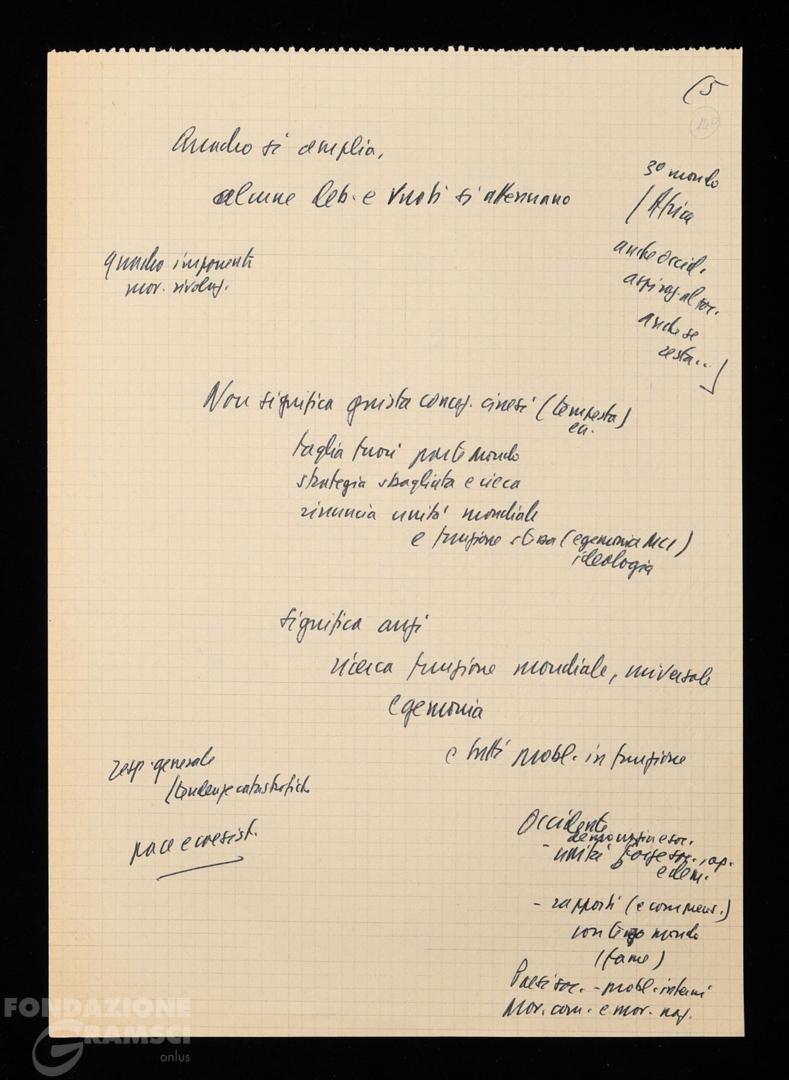 (5
Quadro si amplia,
alcune deb. e vuoti si attenuano
3º mondo
/ Africa
anche occid.
aspiraz. al soc.
anche se
resta..
quadro imponente
mov. rivoluz.
Non significa giusta concez. cinesi (tempesta)
ecc.
taglia fuori parte mondo
strategia sbagliata e cieca
rinuncia unità mondiale
e funzione stessa (egemonia MCI)
ideologia
significa anzi
ricerca funzione mondiale, universale
egemonia
e tutti mobl. in funzione
resp. generale
/tendenze catastrofiche
pace e coesist.
Occidente
democrazia e soc.
- unità forze soc., op.
e dem.
- rapporti (e commerc.)
con terzo mondo
(fame)
Paesi soc. - mobl. interni
Mov. com. e mov. naz.
FONDAZIONE
GRAMSCI
onlus